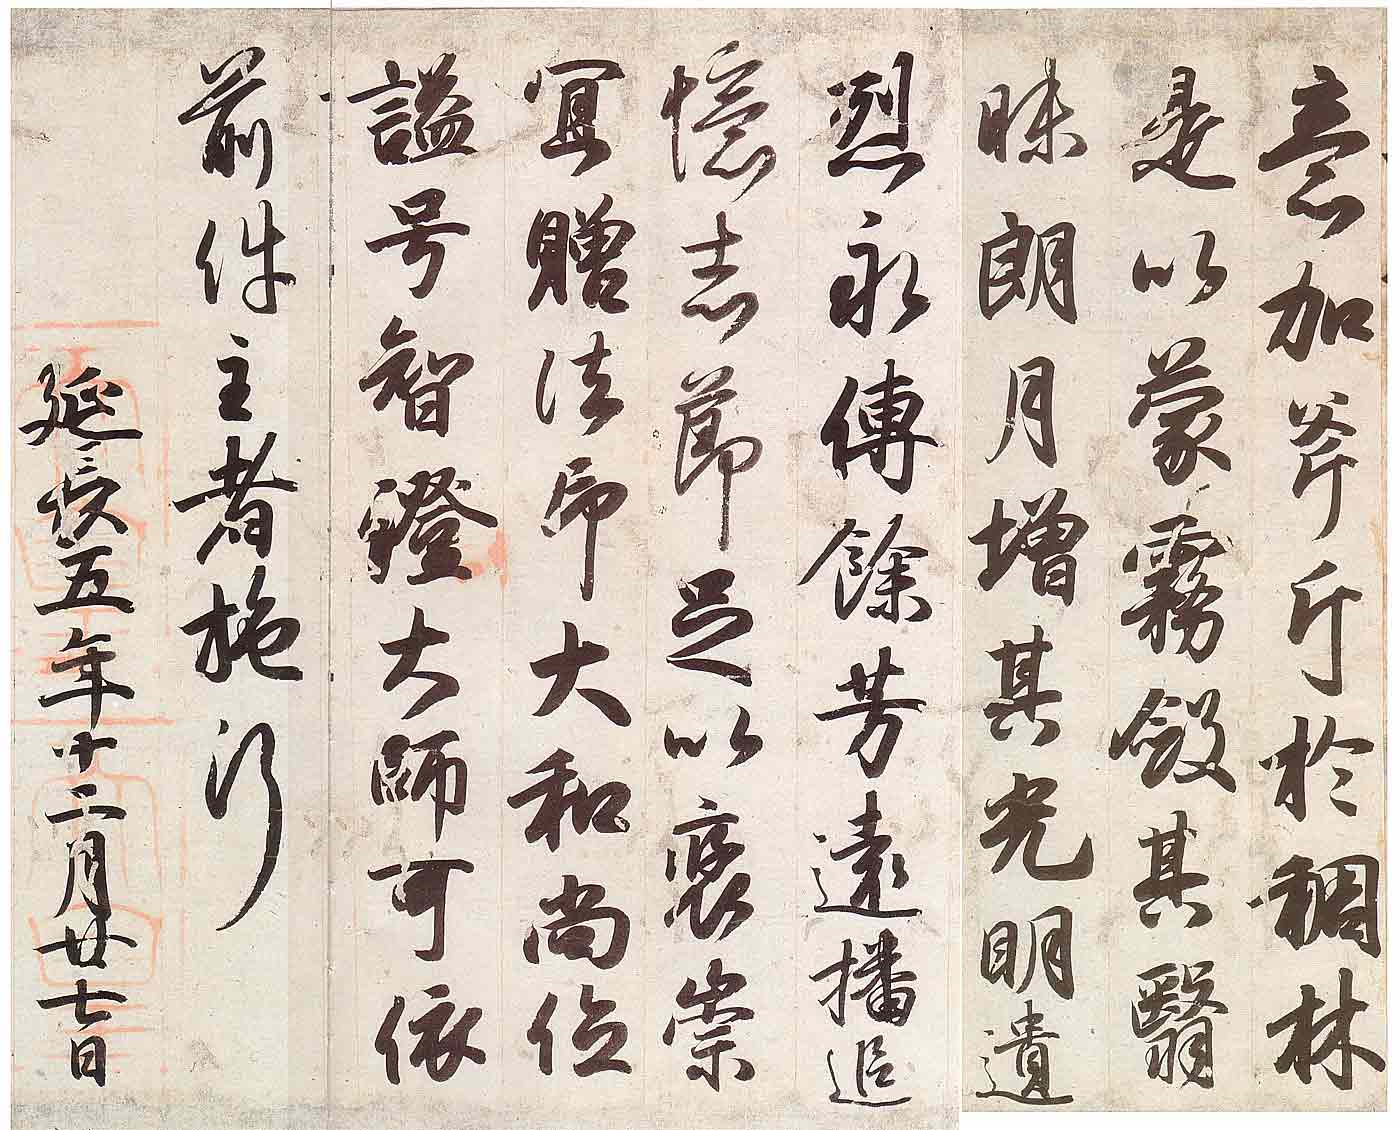 意加斧斤於稠林
是以蒙霧斂其翳
昧朗月增其光明遺
烈永傳餘芳遠播追
憶志節足以褒崇
冝贈法印大和尚位
謚号智證大師可依
前件主者施行
延長五年十二月廿七日